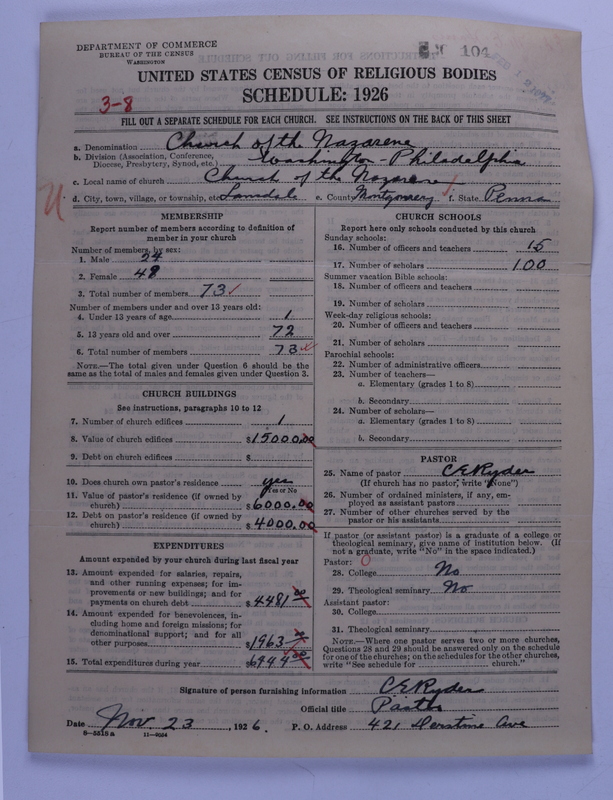 DEPARTMENT OF COMMERCE
BUREAU OF THE CENSUS
WASHINGTON
104
UNITED STATES CENSUS OF RELIGIOUS BODIES
SCHEDULE: 1926
3-8
FILL OUT A SEPARATE SCHEDULE FOR EACH CHURCH. SEE INSTRUCTIONS ON THE BACK OF THIS SHEET
a. Denomination Church of the Nazarene
b. Division (Association, Conference, Diocese, Presbytery, Synod, etc.) Washington-Philadelphia
c. Local name of church Church of the Nazarene
d. City, town, village, or township, etc. Lansdale e. County Montgomery f. State Penna
MEMBERSHIP
Report number of members according to definition of
member in your church
Number of members, by sex:
1. Male 24
2. Female 48
3. Total number of members 73
Number of members under and over 13 years old:
4. Under 13 years of age 1
5. 13 years old and over 72
6. Total number of members 73
NOTE.—The total given under Question 6 should be the
same as the total of males and females given under Question 3.
CHURCH BUILDINGS
See instructions, paragraphs 10 to 12
7. Number of church edifices 1
8. Value of church edifices $15000.00
9. Debt on church edifices $
10. Does church own pastor's residence yes
Yes or No
11. Value of pastor's residence (if owned by
church) $6000.00
12. Debt on pastor's residence (if owned by
church) $4000.00
EXPENDITURES
Amount expended by your church during last fiscal year
13. Amount expended for salaries, repairs,
and other running expenses; for im-
provements or new buildings; and for
payments on church debt $4481.00
14. Amount expended for benevolences, in-
cluding home and foreign missions; for
denominational support; and for all
other purposes $1963
15. Total expenditures during year $6444.00
CHURCH SCHOOLS
Report here only schools conducted by this church
Sunday schools:
16. Number of officers and teachers 15
17. Number of scholars 100
Summer vacation Bible schools:
18. Number of officers and teachers
19. Number of scholars
Week-day religious schools:
20. Number of officers and teachers
21. Number of scholars
Parochial schools:
22. Number of administrative officers
23. Number of teachers—
a. Elementary (grades 1 to 8)
b. Secondary
24. Number of scholars—
a. Elementary (grades 1 to 8)
b. Secondary
PASTOR
25. Name of pastor C E Ryder
(If church has no pastor, write "None")
26. Number of ordained ministers, if any, em-
ployed as assistant pastors
27. Number of other churches served by the
pastor or his assistants
If pastor (or assistant pastor) is a graduate of a college or
theological seminary, give name of institution below. (If
not a graduate, write "No" in the space indicated.)
Pastor: 0
28. College No
29. Theological seminary No
Assistant pastor:
30. College
31. Theological seminary
NOTE.—Where one pastor serves two or more churches,
Questions 28 and 29 should be answered only on the schedule
for one of the churches; on the schedules for the other churches,
write "See schedule for church."
Signature of person furnishing information C E Ryder
Official title Pastor
Date Nov. 23, 1926. P. O. Address 421 Derstine Ave
8-5518a 11-9034